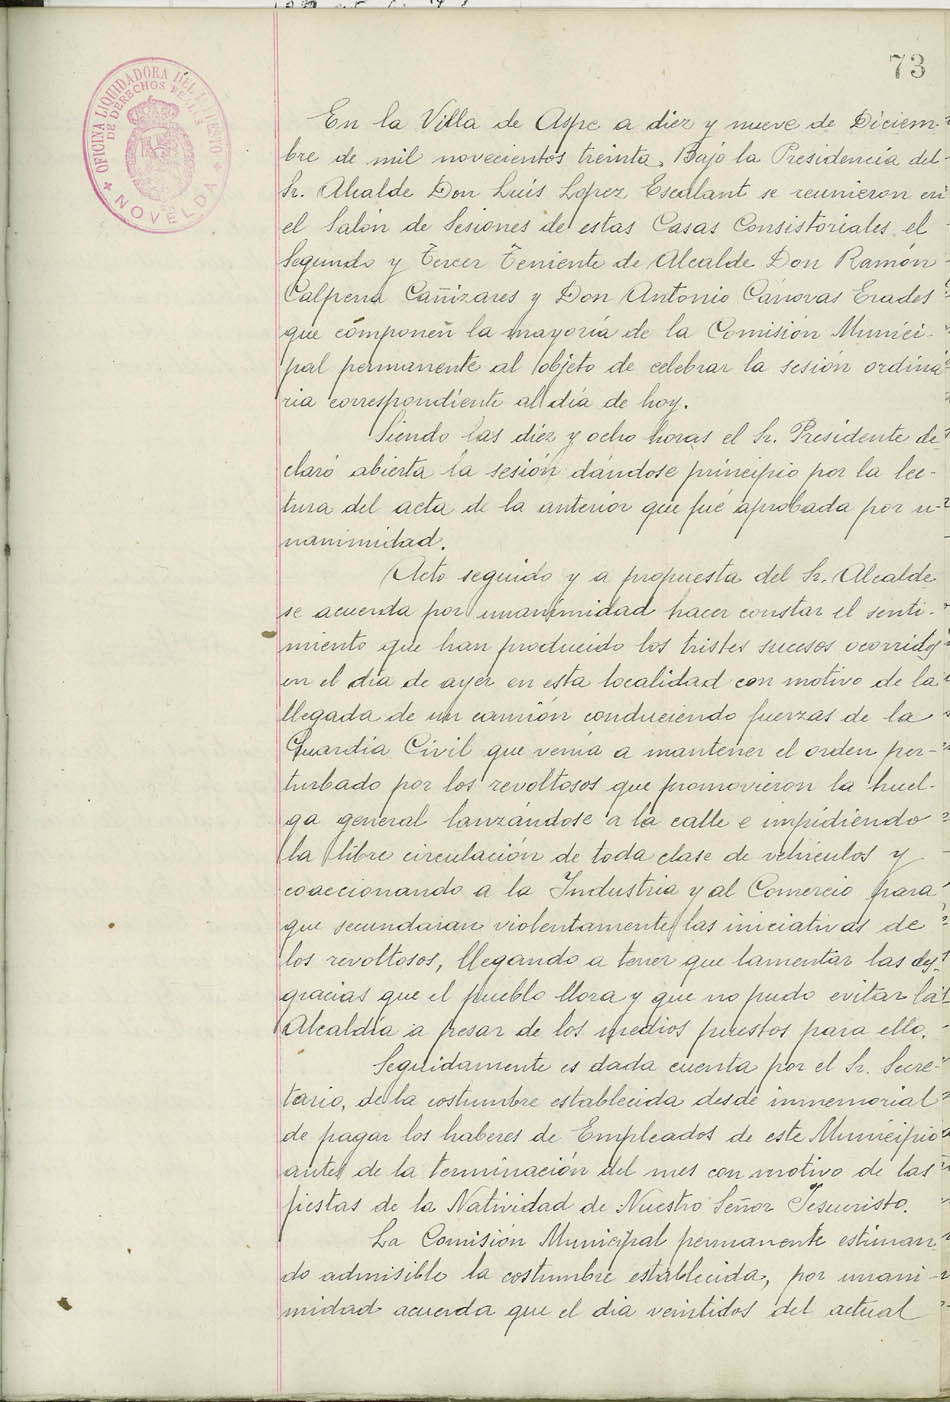 73
OFICINA LIQUIDADORA DEL IMPUESTO
DE DERECHOS REALES
NOVELDA
En la Villa de Aspe a diez y nueve de Diciem-
bre de mil novecientos treinta. Bajo la Presidencia del
Sr. Alcalde Don Luis López Escalant se reunieron en
el Salón de Sesiones de estas Casas Consistoriales el
Segundo y Tercer Teniente de Alcalde Don Ramón
Calpena Cañizares y Don Antonio Cánovas Erades
que componen la mayoría de la Comisión Munici-
pal permanente al objeto de celebrar la sesión ordina
ria correspondiente al día de hoy.
Siendo las diez y ocho horas el Sr. Presidente de-
claró abierta la sesión dándose principio por la lec-
tura del acta de la anterior que fué aprobada por u-
nanimidad.
Acto seguido y a propuesta del Sr. Alcalde
se acuerda por unanimidad hacer constar el senti-
miento que han producido los tristes sucesos ocurridos
en el día de ayer en esta localidad con motivo de la
llegada de un camión conduciendo fuerzas de la
Guardia Civil que venía a mantener el orden per-
turbado por los revoltosos que promovieron la huel-
ga general lanzándose a la calle e impidiendo
la libre circulación de toda clase de vehículos y
coaccionando a la Industria y al Comercio para
que secundaran violentamente las iniciativas de
los revoltosos, llegando a tener que lamentar las des-
gracias que el pueblo llora y que no pudo evitar la
Alcaldía a pesar de los medios puestos para ello.
Seguidamente es dada cuenta por el Sr. Secre-
tario, de la costumbre establecida desde inmemorial
de pagar los haberes de Empleados de este Municipio
antes de la terminación del mes con motivo de las
fiestas de la Natividad de Nuestro Señor Jesucristo.
La Comisión Municipal permanente estiman
do admisible la costumbre establecida, por unani-
midad acuerda que el día veintidos del actual